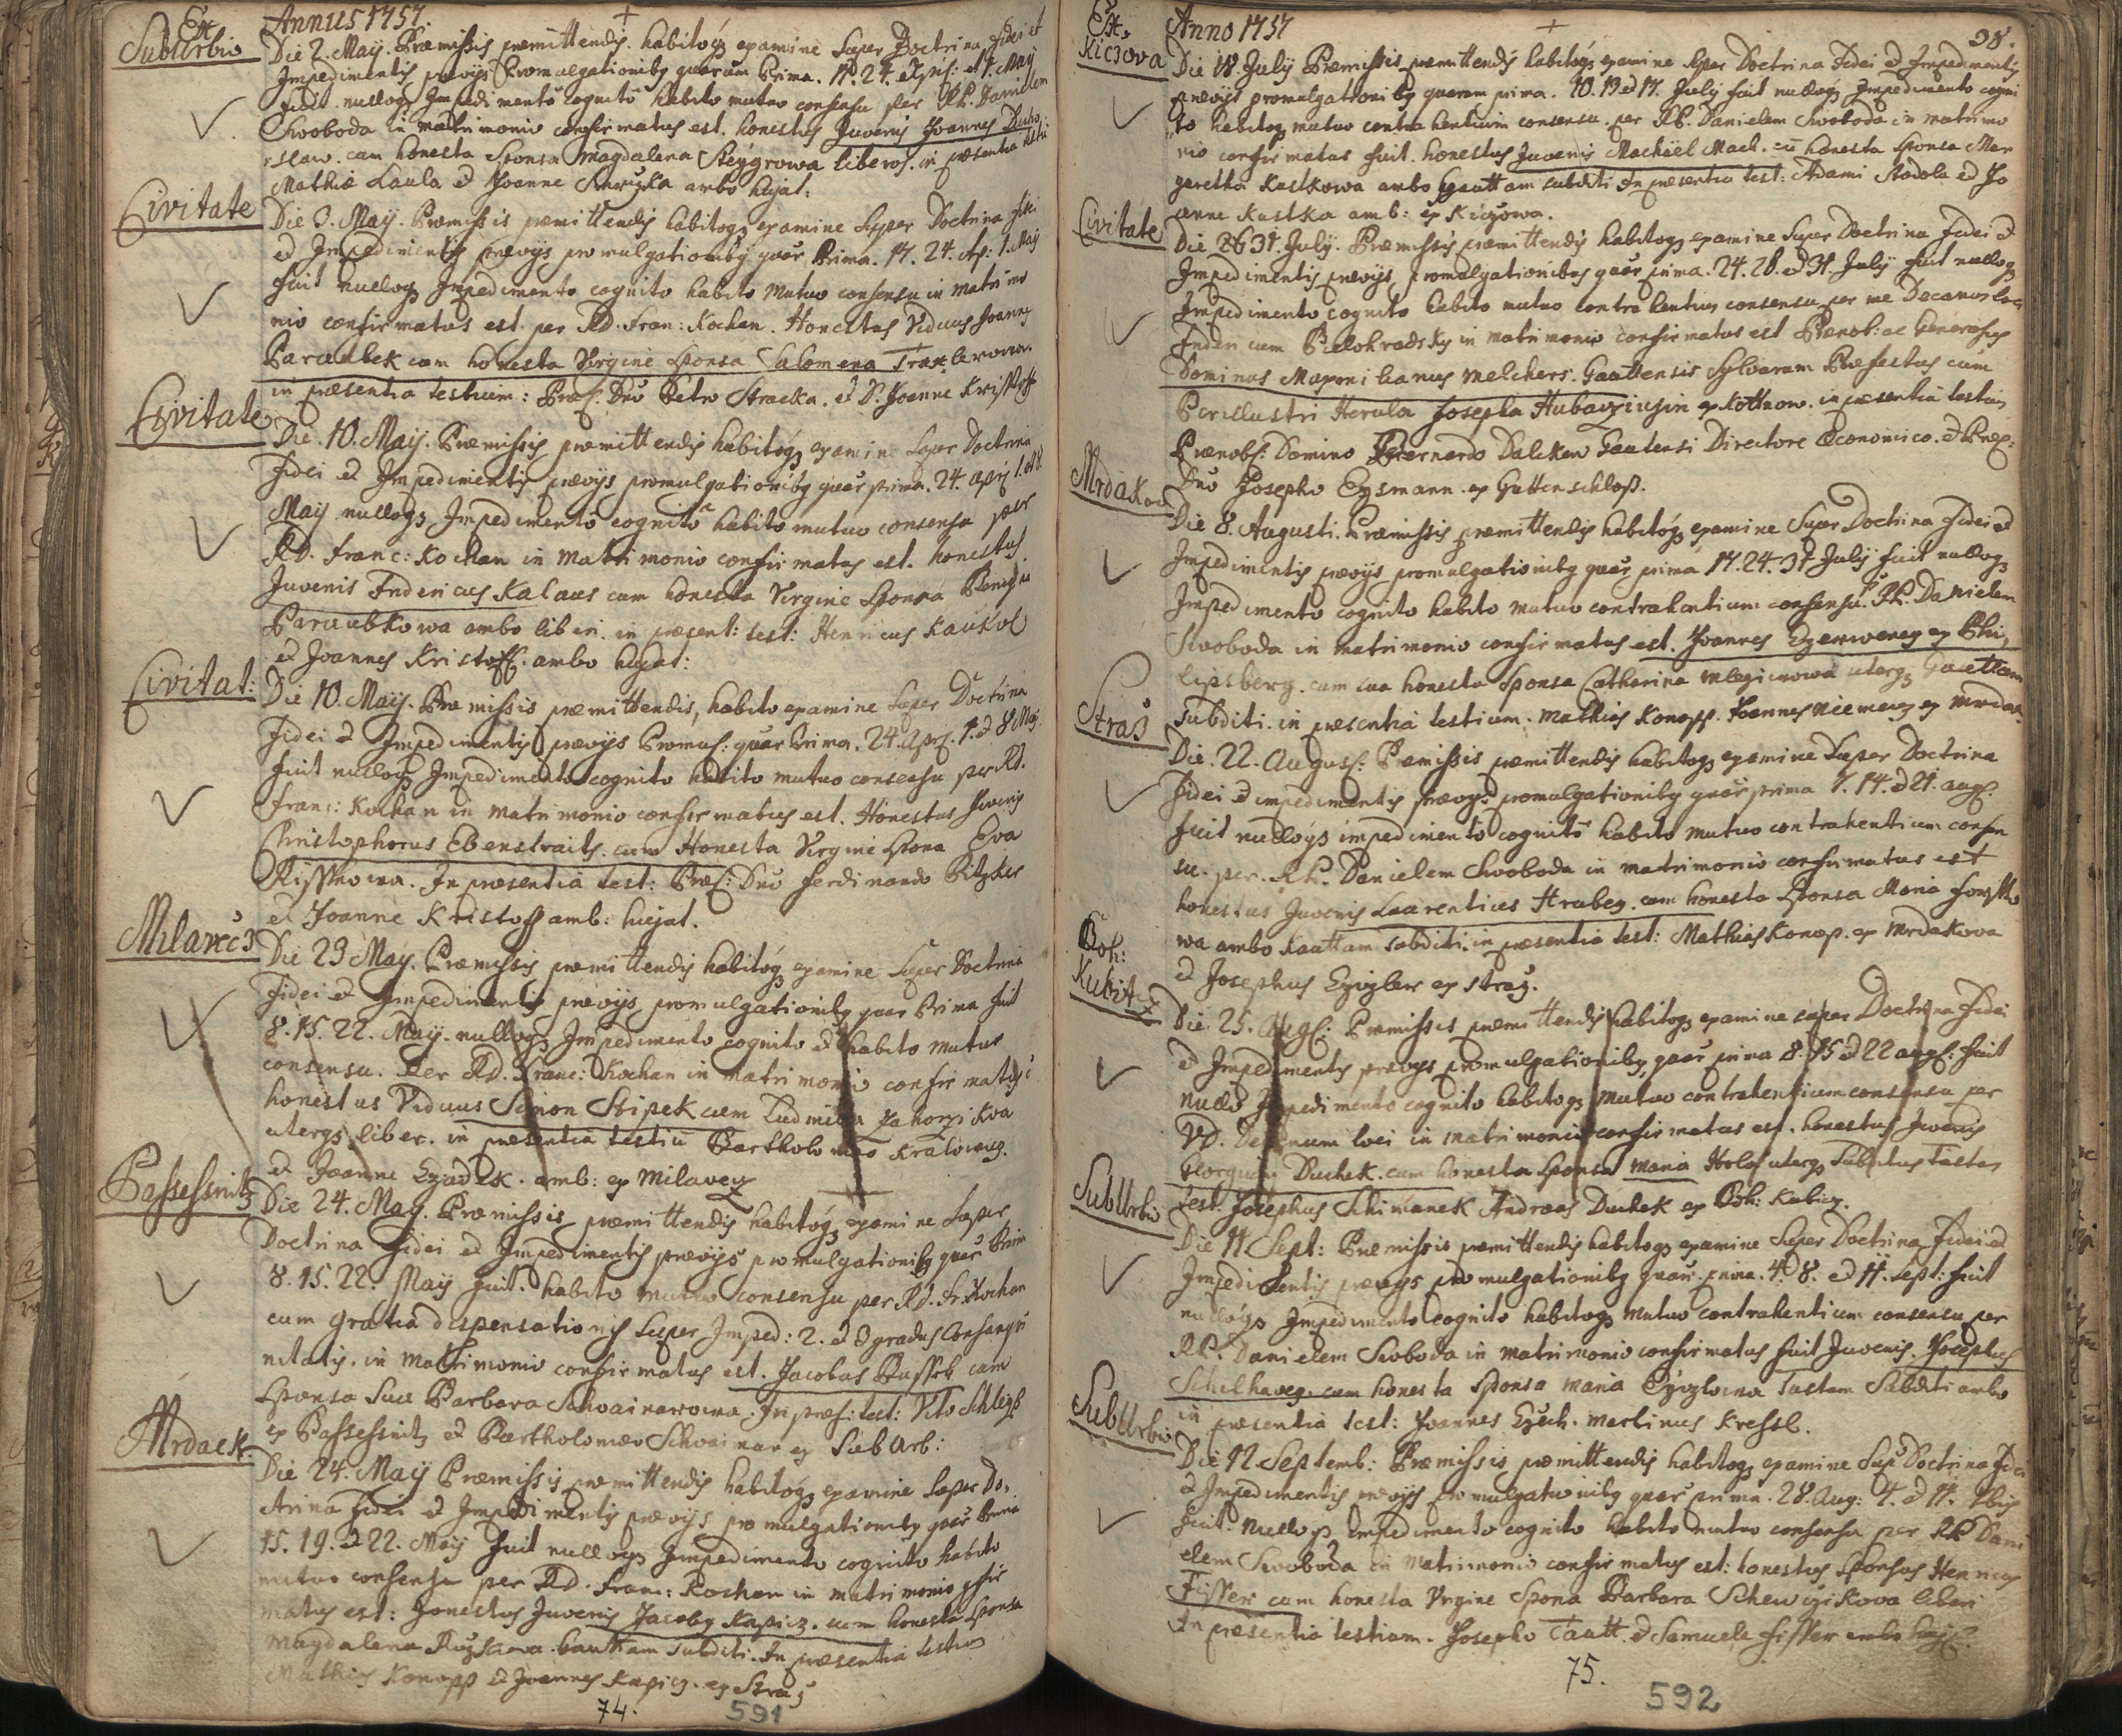 Annus 1757.
Ex
SubUrbio
Die 2. May. Præmissis præmittendis habitoq examine Super Doctrina fidei et
Impedimentis prævys Promulgationibq quarum Prima. 17. 24. et 1. May
fuit nulloq Impedimento cognito habito mutuo consensu per RP. Danielem
Swoboda in matrimonio confirmatus est. honestus Juvenis Joannes
cum honesta Sponsa Magdalena liberos. in præsentia
Mathiæ Laula et Joanne ambo hujat:
Civitate
Die 3. May. Præmissis præmittendis habitoq examine Super Doctrina fidei
et Impedimentis prævys promulgationibq quar Prima. 17. 24. Ap: 1. May
fuit nulloq Impedimento cognito habito mutuo consensu in matrimo
nio confirmatus est per RD. Fran: Kochan. Honestus Viduus Joannes
Paraubek cum honesta Virgine Sponsa Salomena
in præsentia testium: Præs: Dno Petro Stracka. et D. Joanne Kristoff
Civitate
Die. 10. May. Præmissis præmittendis habitoq examine Super Doctrina
fidei et Impedimentis prævys promulgationibq quar prima. 24. apr: 1. et 8.
May nulloq Impedimento cognito habito mutuo consensu per
RD. Franc: Kochan in Matrimonio confirmatus est. honestus
Juvenis Indericus Kalaus cum honesta Virgine Sponsa
Paraubkowa ambo liberi. in præsent: test: Henricus Kaukol
et Joannes Kristoff. ambo hujat:
Civitat:
Die 10. May. Præmissis præmittendis, habito examine Super Doctrina
fidei et Impedimentis prævys Promul: quar Prima. 24. Apr: 1. et 8 May
fuit nulloq Impedimento cognito habito mutuo consensu per RD.
Franc: Kochan in matrimonio confirmatus est. Honestus Juvenis
Christophorus Ebenstraits. cum Honesta Virgine Spona Eva
In præsentia test: Præs: Dno Ferdinando Pitzker
et Joanne Kristoff amb: hujat.
Milavecz
Die 23 May. Præmissis præmittendis habitoq examine Super Doctrina
fidei et Impedimentis prævys promulgationibq quar Prima fuit
8. 15. 22. May. nulloq Impedimento cognito et habito mutuo
consensu. Per RD. Franc: Kochan in matrimonio confirmatus
honestus Viduus Simon Stipek cum Ludmila
uterq liber. in præsentia testiu Bartholomæo
et Joanne amb: ex Milavecz
Passessnitz
Die 24. May. Præmissis præmittendis habitoq examine Super
Doctrina fidei et Impedimentis prævys promulgationibq quar Prim
8. 15. 22. May fuit. habito mutuo consensu per RD. Fr: Kochan
cum gratia dispensationis Super Imped: 2. et 3 gradus Consangui
nitatis. in Matrimonio confirmatus est. Jacobus cum
Sponsa Sua Barbara Schwainarowa. In præs: test: Vito
ex Passessnitz et Bartholomæo Schwainar ex SubUrb:
Mrdack:
Die 24. May Præmissis præmittendis habitoq examine Super Do
ctrina fidei et Impedimentis prævys promulgationibq quar Prima
15. 19. et 22. May fuit nulloq Impedimento cognito habito
mutuo consensu per RD. Franc: Kochan in matrimonio
matus est: honestus Juvenis Jacobq Kapicz. cum honesta Sponsa
Magdalena subditi. In præsentia testium
Mathias Konopp et Joannes Kapicz. ex Straz
74.
591
Ex
Kiczova
Anno 1757
38.
Die 18. July Præmissis præmittendis habitoq examine Super Doctrina Fidei et Impedimentis
prævys promulgationibq quarum prima. 10. 13 et 17. July fuit nulloq Impedimento cogni
to habitoq mutuo contrahentium consensu. per RP. Danielem Swoboda in matrimo
nio confirmatus fuit. honestus Juvenis Machael Mach. cu honesta Sponsa Mar
garetha Kustkowa ambo Gauttam subditi In præsentia test: Adami Stodola et Jo
anne Kustka amb: ex Kiczowa.
Civitate
Die 31. July. Præmissis præmittendis habitoq examine Super Doctrina Fidei et
Impedimentis prævys, promulgationibus quar prima. 24. 28. et 31. July fuit nulloq
Impedimento cognito habito mutuo contrahentium consensu per me Decanus loci
in matrimonio confirmatus est Prænob: ac Generosus
Dominus Maxmilianus Melchers. Gauttensis Sylvarum Præfectus cum
Perillustri Herula Josepha ex Kottnow. in præsentia testium
Prænob: Domino Bernardo Daleken Gautensi Directore Œconomico. et Præs:
Dno Josepho Eysmann. ex Guttenschloß.
Mrdakow
Die 8. Augusti. Præmissis præmittendis habitoq examine Super Doctrina Fidei et
Impedimentis prævys promulgationibq quar prima 17. 24. 31 July fuit nulloq
Impedimento cognito habito mutuo contrahentium consensu. RP. Danielem
Swoboda in matrimonio confirmatus est. Joannes ex Phi
lipsberg. cum sua honesta Sponsa Catharina uterq Gauttam
Subditi. in præsentia testium. Mathias Konopp. Joannes ex
Straz
Die. 22. August: Præmissis præmittendis habitoq examine Super Doctrina
Fidei et impedimentis prævys promulgationibq quar prima 7. 14. et 21. aug:
fuit nulloq impedimento cognito habito mutuo contrahentium consen
su. per. RP. Danielem Swoboda in matrimonio confirmatus est
honestus Juvenis Laurentius Hrubeg. cum honesta Sponsa Maria
wa ambo Kauttam subditi. in præsentia test: Mathias Konop. ex Mrdakova
et Josephus ex straz.
Boh:
Kubitz
Die. 25. Aug: Præmissis præmittendis habitoq examine super Doctrina Fidei
et Impedimentis prævys promulgationibq quar prima 8. 15 et 22 aug: fuit
nullo Impedimento cognito habitoq mutuo contrahentium consensu per
VD. Decanum loci in matrimonio confirmatus est. honestus Juvenis
Georgius Duchek. cum honesta Sponsa Maria uterq
test: Josephus Schimanek Andreas Duchek ex Boh: Kubicz.
SubUrbio
Die 11 Sept: Præmissis præmittendis habitoq examine Super Doctrina Fidei et
Impedimentis prævys promulgationibq quar. prima. 4. 8. et 11. Sept: fuit
nulloq Impedimento cognito habitoq mutuo contrahentium consensu per
RP. Danielem Swoboda in Matrimonio confirmatus fuit Juvenis. Josephus
Schilhaveg. cum honesta Sponsa Maria Tustam Subditi ambo
in præsentia test: Joannes Martinus Kressl.
SubUrbio
Die 12. Septemb: Præmissis præmittendis habitoq examine Sup Doctrina Fidei
et Impedimentis prævys promulgationibq quar prima. 28. Aug: 4. et 11. 7bris
fuit. Nulloq Impedimento cognito habito mutuo consensu per RP Dani
elem Swoboda in Matrimonio confirmatus est: honestus Sponsus Henricus
Fisser cum honesta Virgine Spona Barbara liberi
In præsentia testium. Josepho Tautt. et Samuele Fisser ambo
75.
592